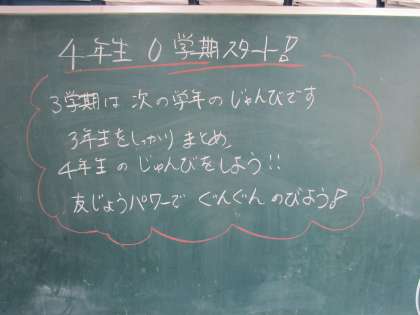 4年生 0 学期スタート!
3学期は 次の学年の じゅんびです
3年生をしっかり まとめ、
4年生 の じゅんびをしよう!!
友じょうパワーで ぐんぐん のびよう!